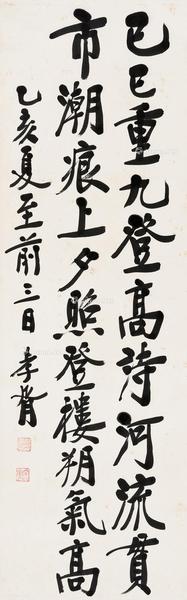 己巳重九登高詩河流貫
市潮痕上夕照登樓朔氣高
乙亥夏至前三日 李胥